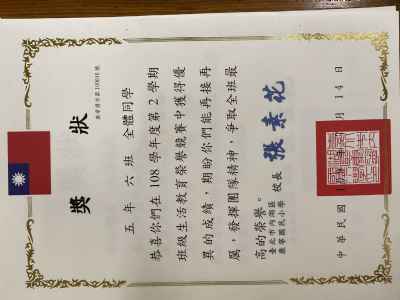 獎狀
五年六班 全體同學
恭喜你們在108學年度第2學期
班級生活教育榮譽競賽中獲得優
異的成績，期盼你們能再接再
厲，發揮團隊精神，爭取全班最
高的榮譽。
臺北市內湖區
麗
國民小學
校長 張素花
中華民國
月14日